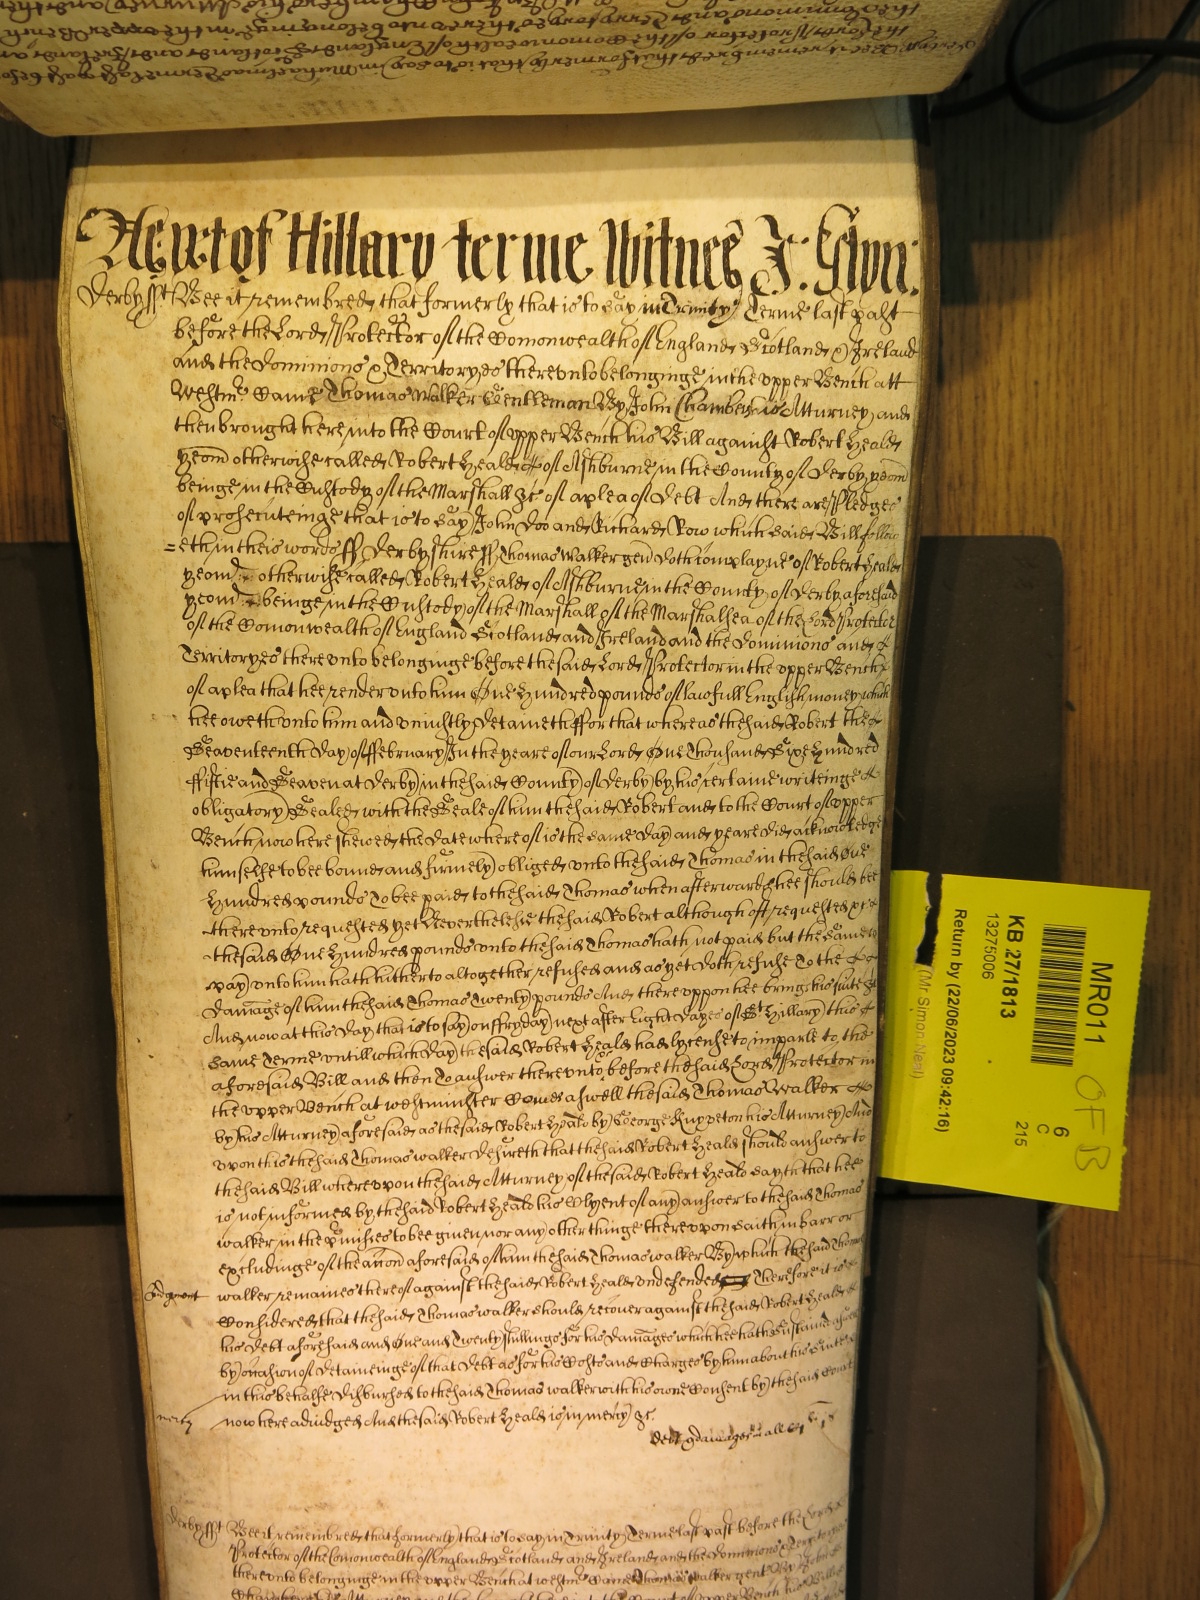 Yet of Hillary terme Witnes J: Glyn:
Derby ss Bee it remembred that formerly that is to say in Trinity Terme last past
before the Lord Protector of the Comonwealth of England Scotland & Ireland
and the Dominions & Territoryes therevnto belonginge in the vpper Bench att
Westmr Came Thomas Walker Gentleman By John Chamber his Atturney and
then brought here into the Court of vpper Bench his Bill against Robert Heald
yeom otherwise called Robert Heald of Ashburne in the County of Derby yeom
beinge in the Custody of the Marshall &c of a plea of Debt And there are Pledges
of prosecuteinge that is to say John Doo and Richard Row which said Bill follow
=eth in theis words ss Derbyshire ss Thomas Walker gen doth complayne of Robert Heald
yeom otherwise called Robert Heald of Ashburne in the County of Derby aforesaid
yeom beinge in the Custody of the Marshall of the Marshalsea of the Lord Protector
of the Comonwealth of England Scotland and Ireland and the Dominions and
Territoryes therevnto belonginge before the said Lord Protector in the vpper Bench
of a plea that hee render vnto him One Hundred pounds of lawfull English money which
hee oweth vnto him and vniustly detaineth ffor that whereas the said Robert the
Seaventeenth day of ffebruary In the yeare of our Lord One Thousand Sixe Hundred
ffiftie and Seaven at Derby in the said County of Derby by his certaine writeinge
obligatory Sealed with the Seale of him the said Robert and to the Court of vpper
Bench now here shewed the date whereof is the same day and yeare did acknowledge
himselfe to bee bound and firmely obliged vnto the said Thomas in the said One
Hundred pounds To bee paid to the said Thomas when afterwards hee should bee
therevnto requested yet Neverthelesse the said Robert although oft requested &c
the said One Hundred pounds vnto the said Thomas hath not paid but the same to
pay vnto him hath hitherto altogether refused and as yet doth refuse To the
damage of him the said Thomas Twenty pounds And therevppon hee brings his suite &c
And now at this day that is to say on ffryday next after Eight dayes of St Hillary this
same Terme vntill which day the said Robert Heald had lycense to imparle to the
aforesaid Bill and then To answer therevnto before the said Lord Protector in
the vpper Bench at Westminster Comes aswell the said Thomas Walker
by his Atturney aforesaid as the said Robert Heald by George his Atturney And
vpon this the said Thomas Walker desireth that the said Robert Heald should answer to
the said Bill wherevpon the said Atturney of the said Robert Heald sayth that hee
is not informed by the said Robert Heald his Clyent of any answer to the said Thomas
Walker in the p'misses to bee given nor any other thinge therevpon saith in barr or
excludinge of the accon aforesaid of him the said Thomas Walker By which the said Thomas
Judgment Walker remaines thereof against the said Robert Heald vndefended Therefore it is
Considered that the said Thomas Walker should recover against the said Robert Heald
his debt aforesaid and One and Twenty shillings for his damages which hee hath sustained aswell
by occasion of detaineinge of that debt as for his Costs and Charges by him about his suite
in this behalfe disbursed to the said Thomas Walker with his owne Consent by the said Court
mercy now here adiudged And the said Robert Heald is in mercy &c
debt & damages in all
Derby ss Bee it remembred that formerly that is to say in Trinity Terme last past before the Lord
Protector of the Comonwealth of England Scotland and Ireland and the Dominions & Territoryes
therevnto belonginge in the vpper Bench at Westmr Came Thomas Walker gent By John
MR011
OFB
6
C
215
KB 27/1813
13275006
Return by (22/06/2023 09:42:16)
(Mr Simon Neal)